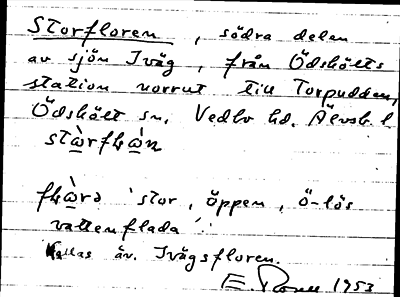 Storfloren, södra delen
av sjön Iväg, från Ödskölts
station norrut till Torpudden,
Ödskölt sn. Vedbo hd. Älvsb. l.
stor, öppen, ö-lös
vattenflada
Kallas äv. Ivägsfloren.
E. 1953